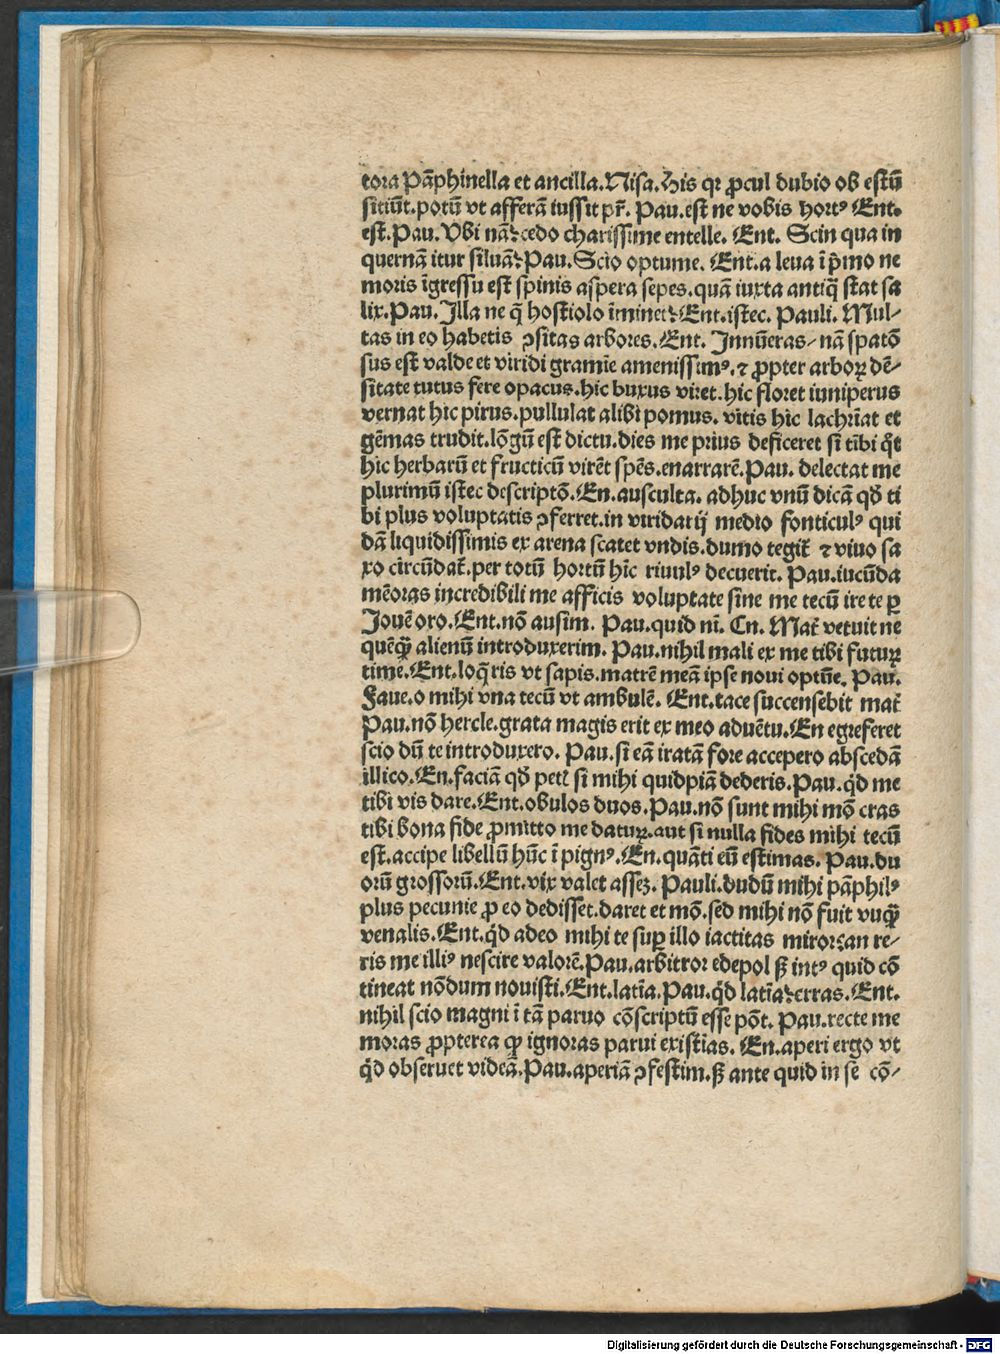 tora Pāphinella et ancilla. Nisa. His qꝛ ꝓcul dubio ob estū
sitiūt. potū vt afferā iussit pr̄. Pau. est ne vobis hortꝰ Ent.
est. Pau. Vbi nā? cedo charissime entelle. Ent. Scin qua in
quernā itur siluā? Pau. Scio optume. Ent. a leua ī p̄mo ne
moris īgressu est spinis aspera sepes. quā iuxta antiq̄ stat sa
lix. Pau. Illa ne q̄ hostiolo īminet? Ent. istec. Pauli. Mul⸗
tas in eo habetis ꝯsitas arbores. Ent. Innūeras/ nā spatō
sus est valde et viridi gramīe amenissimꝰ. ⁊ ꝓpter arboꝝ dē⸗
sitate tutus fere opacus. hic buxus viret. hic floret iuniperus
vernat hic pirus. pullulat alibi pomus. vitis hic lachrīat et
gēmas trudit. lōgū est dictu. dies me prius deficeret si tibi q̄t
hic herbarū et fructicū virēt spēs. enarrarē. Pau. delectat me
plurimū istec descriptō. En. ausculta. adhuc vnū dicā qd̄ ti
bi plus voluptatis ꝯferret. in viridarij medio fonticulꝰ qui
dā liquidissimis ex arena scatet vndis. dumo tegit̄ ⁊ viuo sa
xo circūdat̄. per totū hortū hic riuulꝰ decuerit. Pau. iucūda
mēoras incredibili me afficis voluptate sine me tecū ire te ꝑ
Jouē oro. Ent. nō ausim. Pau. quid ni. En. Mat̄ vetuit ne
quēꝙ̄ alienū introduxerim. Pau. nihil mali ex me tibi futuꝝ
time. Ent. loq̄ris vt sapis. matrē meā ipse noui optūe. Pau.
Faue. o mihi vna tecū vt ambulē. Ent. tace succensebit mat̄
Pau. nō hercle. grata magis erit ex meo aduētu. En egreferet
scio dū te introduxero. Pau. si eā iratā fore accepero abscedā
illico. En. faciā qd̄ petis si mihi quidpiā dederis. Pau. q̄d me
tibi vis dare. Ent. obulos duos. Pau. nō sunt mihi mō cras
tibi bona fide ꝓmitto me datuꝝ. aut si nulla fides mihi tecū
est. accipe libellū hūc ī pignꝰ. En. quāti eū estimas. Pau. du
orū grossorū. Ent. vix valet asseꝫ. Pauli. dudū mihi pāphilꝰ
plus pecunie ꝓ eo dedisset. daret et mō. sed mihi nō fuit vuꝙ̄
venalis. Ent. q̄d adeo mihi te suꝑ illo iactitas miror? an re⸗
ris me illiꝰ nescire valorē. Pau. arbitror edepol ꝫ̄ intꝰ quid cō
tineat nōdum nouisti. Ent. latīa. Pau. q̄d latīa? erras. Ent.
nihil scio magni ī tā paruo cōscriptū esse pōt. Pau. recte me
moras ꝓpterea ꝙ ignoras parui existīas. En. aperi ergo vt
q̄d obseruet videā. Pau. aperiā ꝯfestim. ꝫ̄ ante quid in se cō⸗
Digitalisierung gefördert durch die Deutsche Forschungsgemeinschaft - DFG